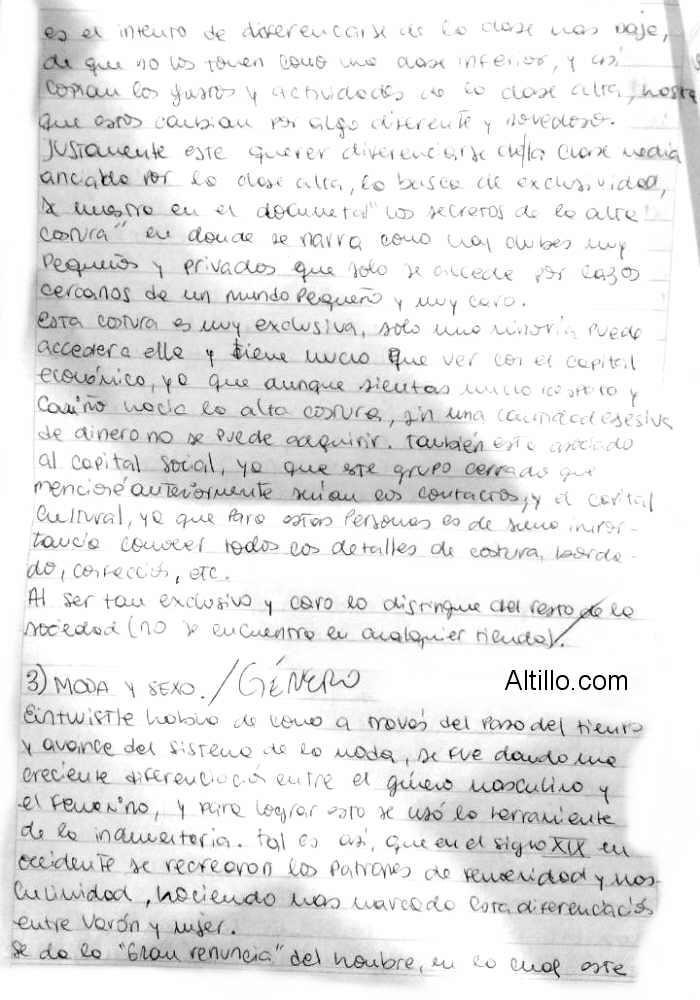 es el intento de diferenciarse de la clase mas baja,
de que no los tomen como una clase inferior, y asi
copian los gustos y actividades de la clase alta, hasta
que estos cambian por algo diferente y novedoso.
Justamente este querer diferenciarse la clase media
por la clase alta, la busca de exclusividad,
se muestra en el documental "los secretos de la alta
costura" en donde se narra como hay clubes muy
pequeños y privados que solo se accede por lazos
cercanos de un mundo pequeño y muy caro.
esta costura es muy exclusiva, solo una minoria puede
acceder a ella y tiene mucho que ver con el capital
económico, ya que aunque sientas mucho respeto y
cariño hacia la alta costura, sin una cantidad exesiva
de dinero no se puede adquirir. también esta asociado
al capital social, ya que este grupo cerrado que
mencioné anteriormente serian los contactos, y el capital
cultural, ya que para estas personas es de suma impor-
tancia conocer todos los detalles de costura, borda-
do, confección, etc.
Al ser tan exclusivo y caro lo distingue del resto de la
sociedad (no se encuentra en cualquier tienda).
3) MODA Y SEXO. / GÉNERO
Altillo.com
Entwistle habla de como a través del paso del tiempo
y avance del sistema de la moda, se fue dando una
creciente diferenciación entre el género masculino y
el femenino, y para lograr esto se usó la herramienta
de la indumentaria. tal es asi, que en el siglo XIX en
occidente se recrearon los patrones de femeneidad y mas-
culinidad, haciendo mas marcado esta diferenciación
entre varón y mujer.
se da la "Gran renuncia" del hombre, en la cual este